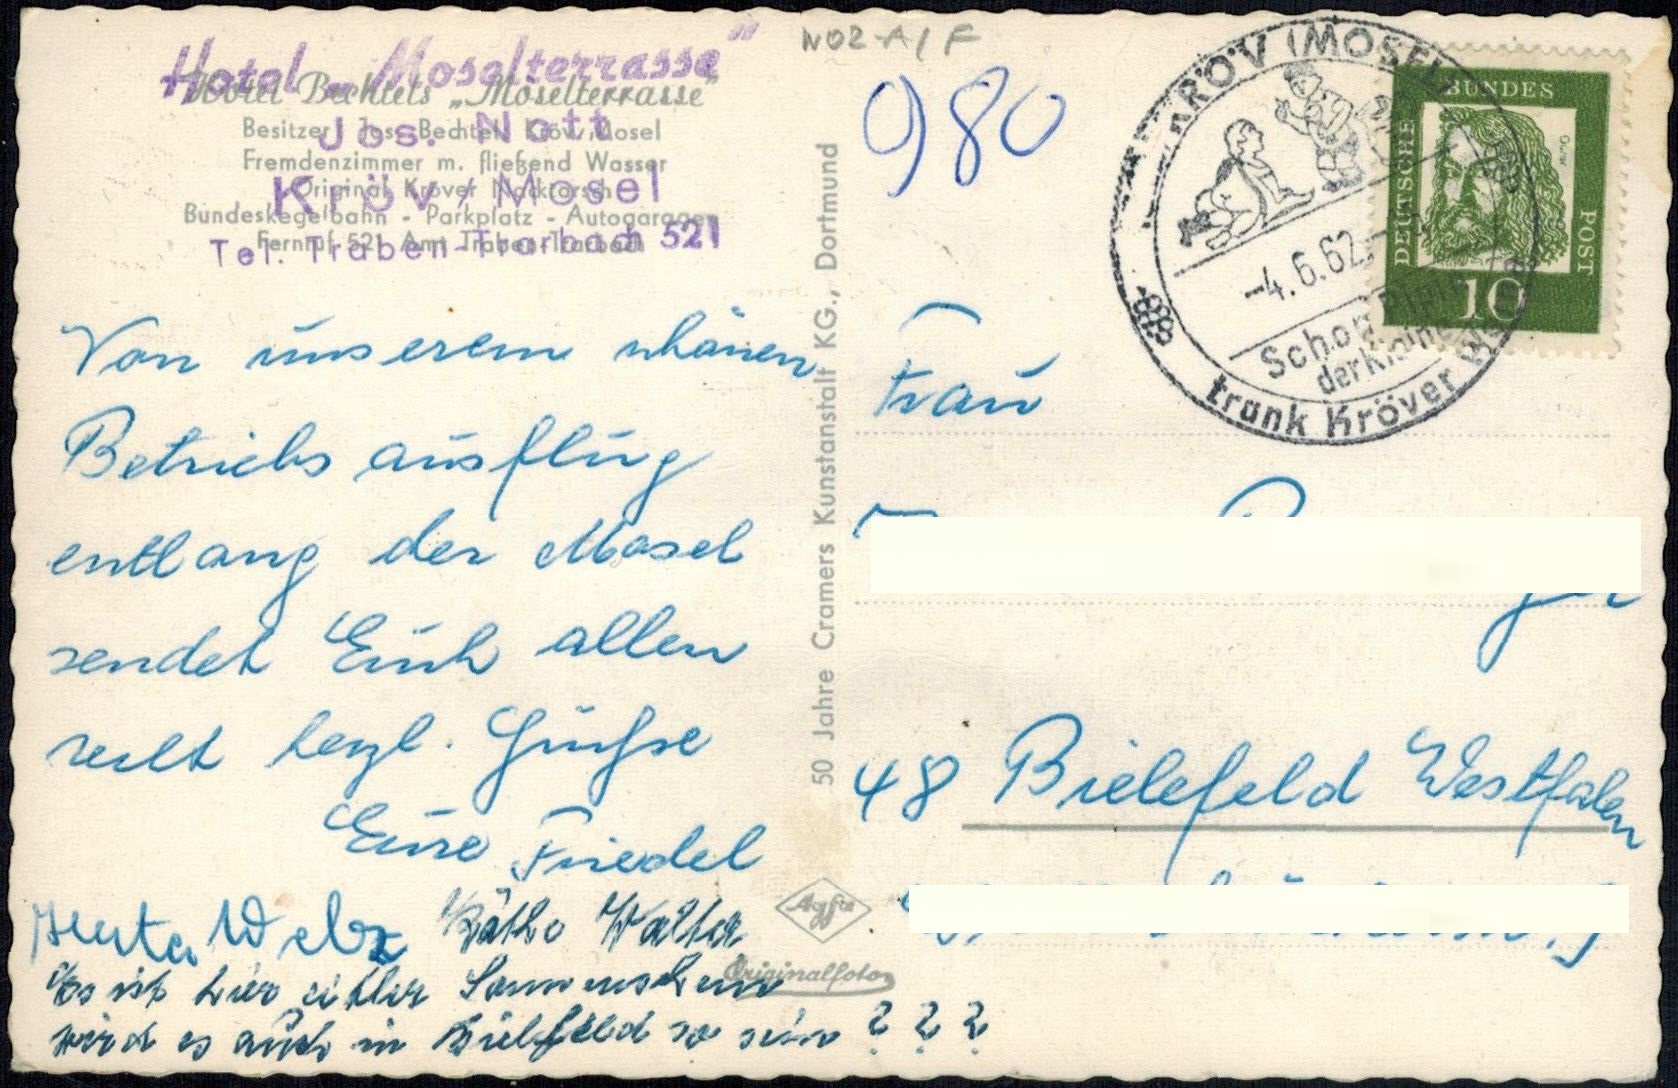 Hotel „Moselterrasse"
Jos. Nott
Kröv/Mosel
Tel. Traben-Trarbach 521
Hotel Bechtels „Moselterrasse"
Besitzer: Jos. Bechtel, Kröv/Mosel
Fremdenzimmer m. fließend Wasser
Original Kröver Nacktarsch
Bundeskegelbahn - Parkplatz - Autogarage
Fernruf 521 Amt Traben-Trarbach
NO2-A/F
980
KRÖV (MOSEL)
-4.6.62
Schon
der kleine
trank Kröver
DEUTSCHE BUNDESPOST
10
Von unserem schönen
Betriebsausflug
entlang der Mosel
sendet Euch allen
recht herzl. Grüße
Eure Friedel
Herta Welz Käthe Walter
Es ist hier eitler Sonnenschein
wird es auch in Bielefeld so sein ? ? ?
50 Jahre Cramers Kunstanstalt KG., Dortmund
Agfa
Originalfoto
Frau
48 Bielefeld Westfalen